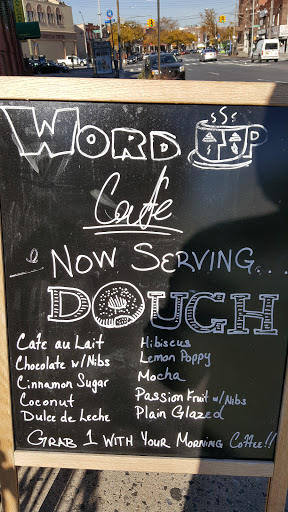 WORD UP
Cafe
NOW SERVING...
DOUGH
Cafe au Lait
Chocolate w/Nibs
Cinnamon Sugar
Coconut
Dulce de Leche
Hibiscus
Lemon Poppy
Mocha
Passion Fruit w/Nibs
Plain Glazed
GRAB 1 WITH YOUR MORNING COFFEE!!